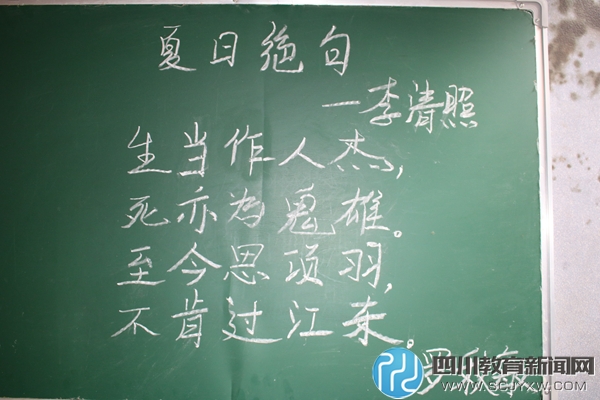 夏日绝句
一李清照
生当作人杰,
死亦为鬼雄。
至今思项羽,
不肯过江东。
罗
四川教育新闻网
WWW.SCJYXW.COM